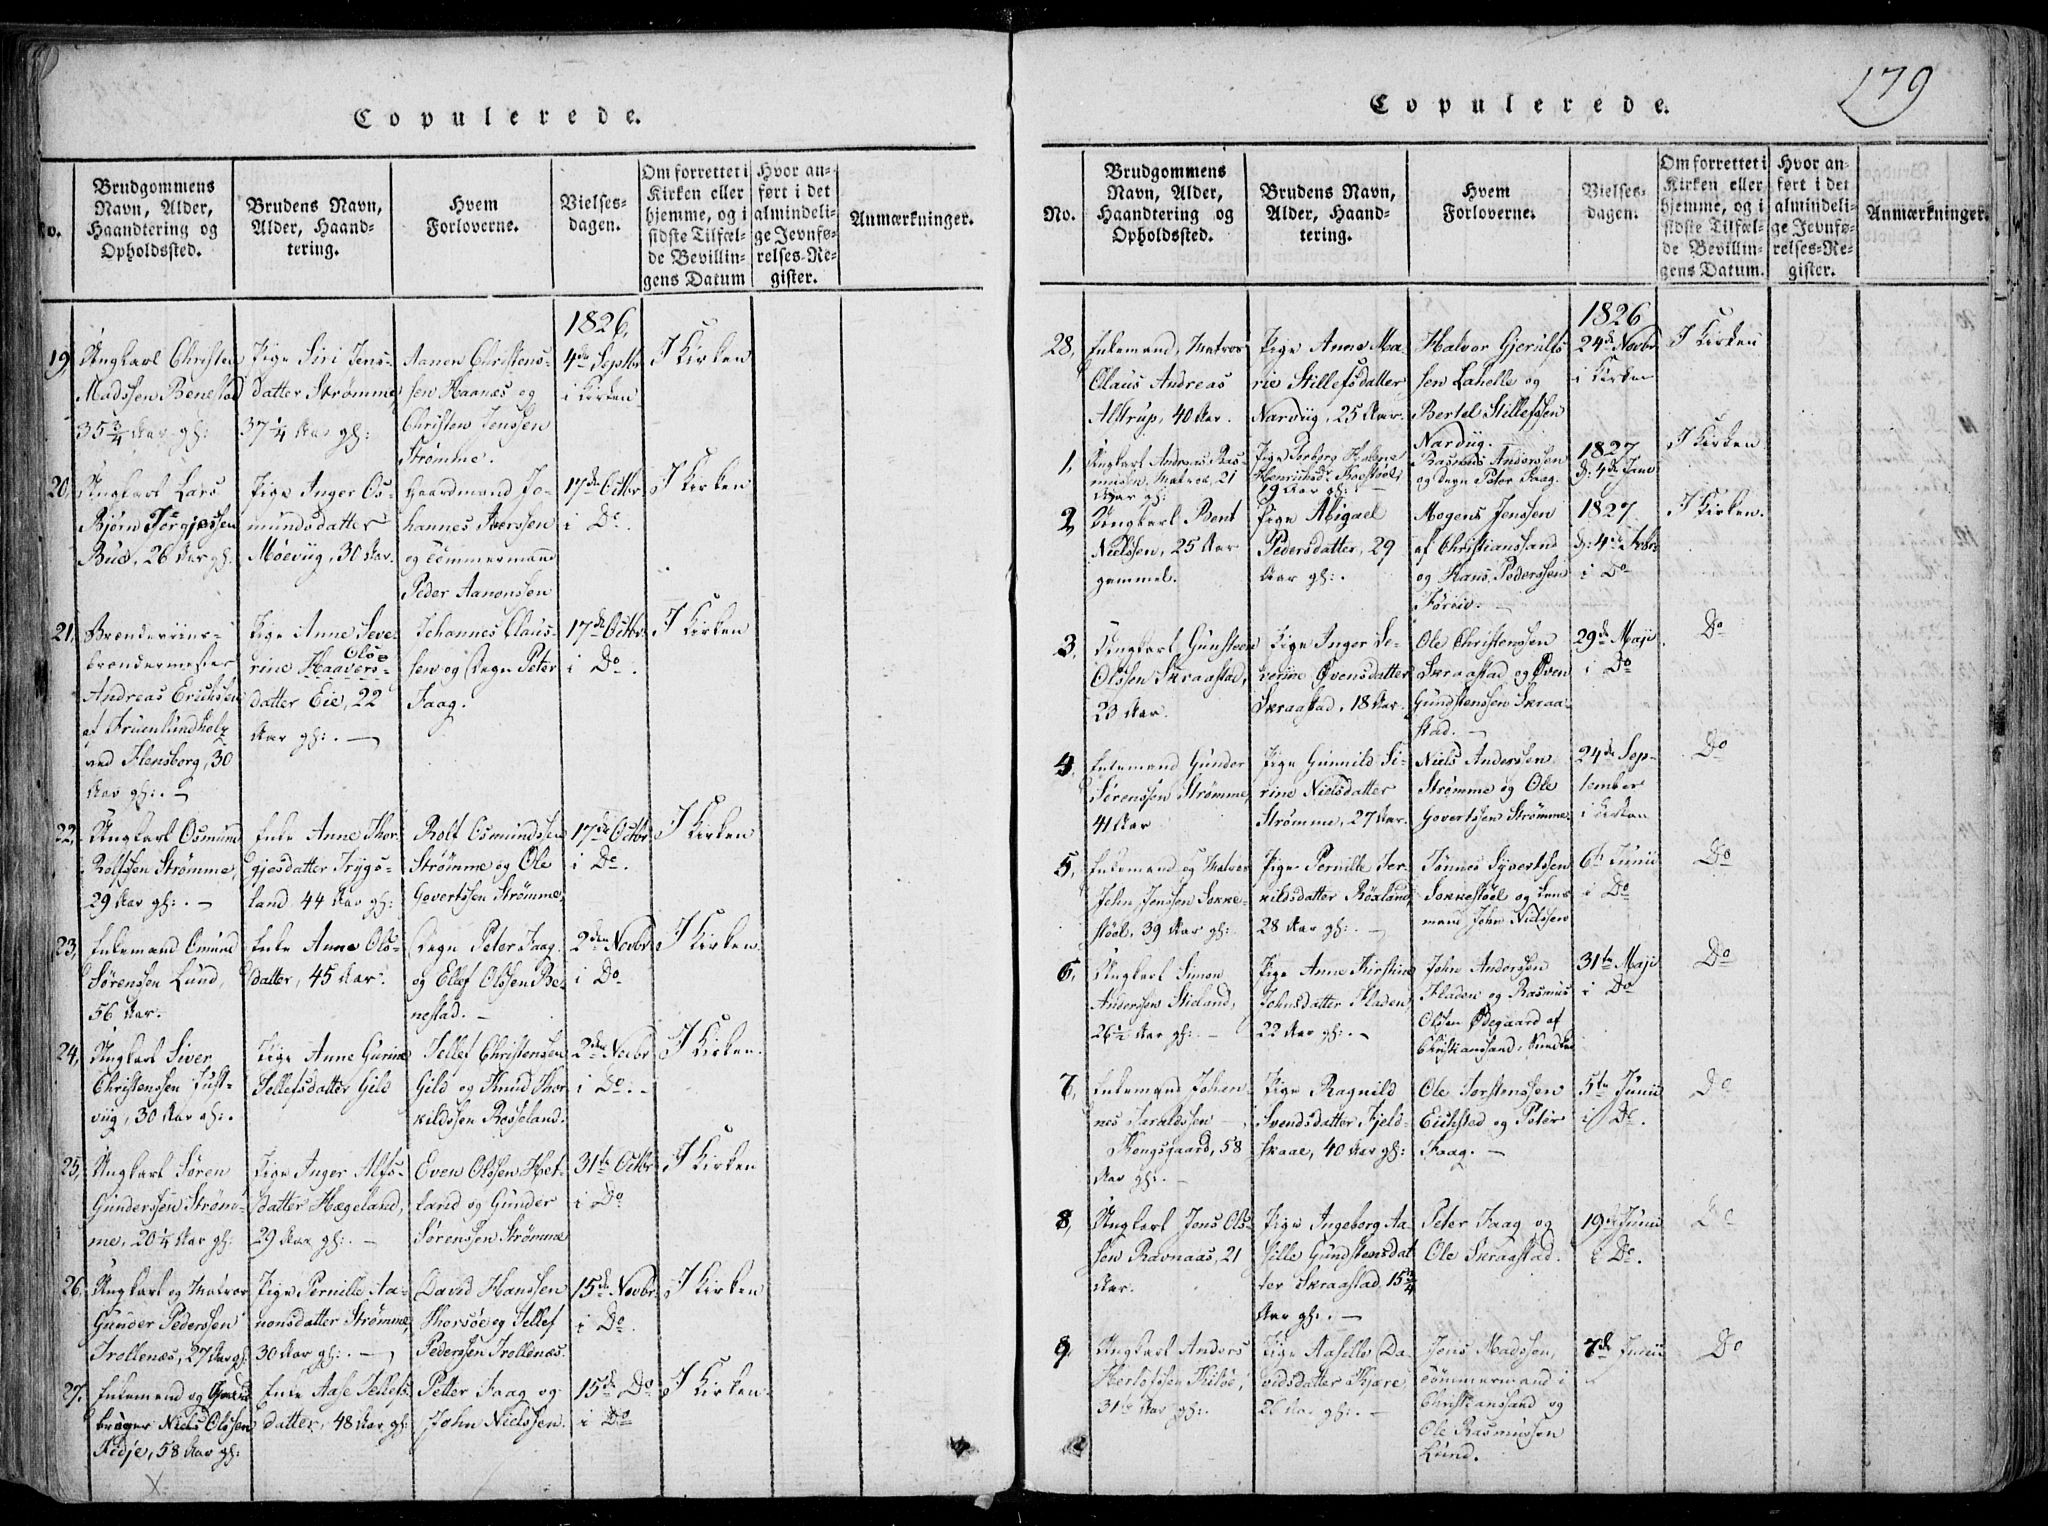 179
Copulerede.
No.
Brudgommens Navn, Alder, Haandtering og Opholdssted.
Brudens Navn, Alder, Haandtering.
Hvem Forloverne.
Vielsesdagen.
Om forrettet i Kirken eller hjemme, og i sidste Tilfælde Bevillingens Datum
Hvor anført i det almindelige Jevnførelses-Register.
Anmærkninger.
1826.
19, Ungkarl Christen
Madssen Benestad
35 3/4 Aar gl:
Pige Siri Jens-
datter Strømme,
37 1/4 Aar gl:
Aanen Christens-
sen Haanæs og
Christen Jenssen
Strømme.
4de Septbr
i Kirken
I Kirken
20, Ungkarl Lars
Bjørn Törgjussen
Bue, 26 Aar gl:
Pige Inger Os-
mundsdatter
Møeviig, 30 Aar.
Gaardmand Jo-
hannes Iverssen
og Tömmermann
Peder Aanonssen
17de Octbr
i Do.
I Kirken
21, Brændeviins-
brændermester
Andreas Erichsen
af Fruenlundholz
ved Flensborg, 30
Aar gl:.
Pige Anne Seve-
rine Haavers- Ols-
datter Eie, 22
Aar gl:.
Johannes Claus-
sen og Degn Peter
Faag.
17de Octbr.
i Do.
I Kirken
22, Ungkarl Osmund
Rolfssen Strømme,
29 Aar gl:.
Enke Anne Thor-
gjesdatter Trygs-
land 44 Aar gl:
Rolf Osmundssen
Strømme og Ole
Govertssen Strømme,
17de Octbr.
i Do.
I Kirken
23, Enkemand Omund
Sørenssen Lund,
56 Aar.
Enke Anne Ols-
datter, 45 Aar.
Degn Peter Faag
og Ellef Olssen Be-
nestad.
2den Novbr.
i Do
I Kirken
24, Ungkarl Siver
Christenssen Just-
viig, 30 Aar gl:.
Pige Anne Gurine
Tellefsdatter Gild
Tellef Christenssen
Gild og Knud Thor-
kildssen Rosseland.
2den Novbr
i Do.
I Kirken.
25, Ungkarl Søren
Gunderssen Strøm-
me, 20 1/4 Aar gl:
Pige Inger Alfs-
datter Hægeland,
29 Aar gl:.
Even Olssen Het-
land og Gunder
Sørenssen Strømme
31te Octbr
i Do
I Kirken
26, Ungkarl og Matros
Gunder Pederssen
Trollenæs, 27 Aar gl:
Pige Pernille Aa-
nonsdatter Strømme,
30 Aar gl:.
David Hanssen
Thorsøe og Tellef
Pederssen Trollenæs.
15de Novbr.
i Do.
I Kirken
27. Enkemand og Gaard-
bruger Niels Olssen
Fidje, 58 Aar gl:
Enke Aase Tellefs-
datter, 48 Aar gl:
Petter Faag og
John Nielssen.
15de Do
i Do
I Kirken.
Copulerede.
No.
Brudgommens Navn, Alder, Haandtering og Opholdssted.
Brudens Navn, Alder, Haandtering.
Hvem Forloverne.
Vielsesdagen.
Om forrettet i Kirken eller hjemme, og i sidste Tilfælde Bevillingens Datum.
Hvor anført i det almindelige Jevnførelses-Register.
Anmærkninger.
1826
28, Enkemand, Matros
Olaus Andreas
Alstrup, 40 Aar.
Pige Anne Ma-
rie Stillefsdatter
Narviig, 25 Aar.
Halvor Gjerulfs-
sen Lahelle og
Bertel Stillefssen
Narviig.
24de Novbr
i Kirken
I Kirken
1, Ungkarl Andreas Ras-
mussen, Matros, 21
Aar gl:
Pige Torborg Helene
19 Aar gl:
Rasmus Anderssen
og Degn Peter Faag.
1827
d: 4de Janr
I Kirken
2, Ungkarl Bent
Nielssen, 25 Aar
gammel.
Pige Abigael
Pedersdatter, 29
Aar gl:.
Mogens Jenssen
af Christianssand
og Hans Pederssen
1827
d: 4de Febr
i Do
I Kirken.
3, Ungkarl Gunsteen
Olssen Skraastad,
23 Aar.
Pige Inger Se-
verine Øvensdatter
Skraastad, 18 Aar.
Ole Christenssen
Skraastad og Øven
Gundstenssen Skraa-
stad.
29de Maji
i Do
Do
4, Enkemand Gunder
Sørenssen Strømme,
41 Aar
Pige Gunnild Si-
rine Nielsdatter
Strømme, 27 Aar.
Niels Anderssen
Strømme og Ole
Govertssen Strømme.
24de Sep-
tember
i Kirken
Do
5, Enkemand og Matros
John Jenssen Sokke-
støel, 39 Aar gl:
Pige Pernille Ter-
kildsdatter Röxland,
28 Aar gl:.
Tønnes Syvertssen
Sokkestøel og Lens-
mand John Nielssen
6te Junii
i Do
Do
6, Ungkarl Simon
Anderssen Stieland,
26 1/2 Aar gl:
Pige Anne Kirstine
Johnsdatter Fladen,
22 Aar gl:.
John Anderssen
Fladen og Rasmus
Olssen Ødegaard af
Christianssand
31te Maji
i Do
Do
7, Enkemand Johan-
nes Haraldssen
Kongsgaard, 58
Aar gl:.
Pige Ragnild
Svendsdatter Kjeld-
skaae, 40 Aar gl:
Ole Torstenssen
Eichsted og Peter
Faag.
5te Junii
i Do.
Do
8, Ungkarl Jens Ols-
sen Ravnaas, 21
Aar.
Pige Ingeborg Aa-
sille Gundstensdat-
ter Skraastad, 15 3/4
Aar gl:.
Peter Faag og
Ole Skraastad.
19de Junii
i Do.
Do
9, Ungkarl Anders
Herlofssen
31te Aar gl:.
Pige Aasille Da-
vidsdatter Kjære,
26 Aar gl:.
Jens Madssen,
Tømmermand i
Christianssand og
Ole Rasmussen
Lund.
7de Junii
Do